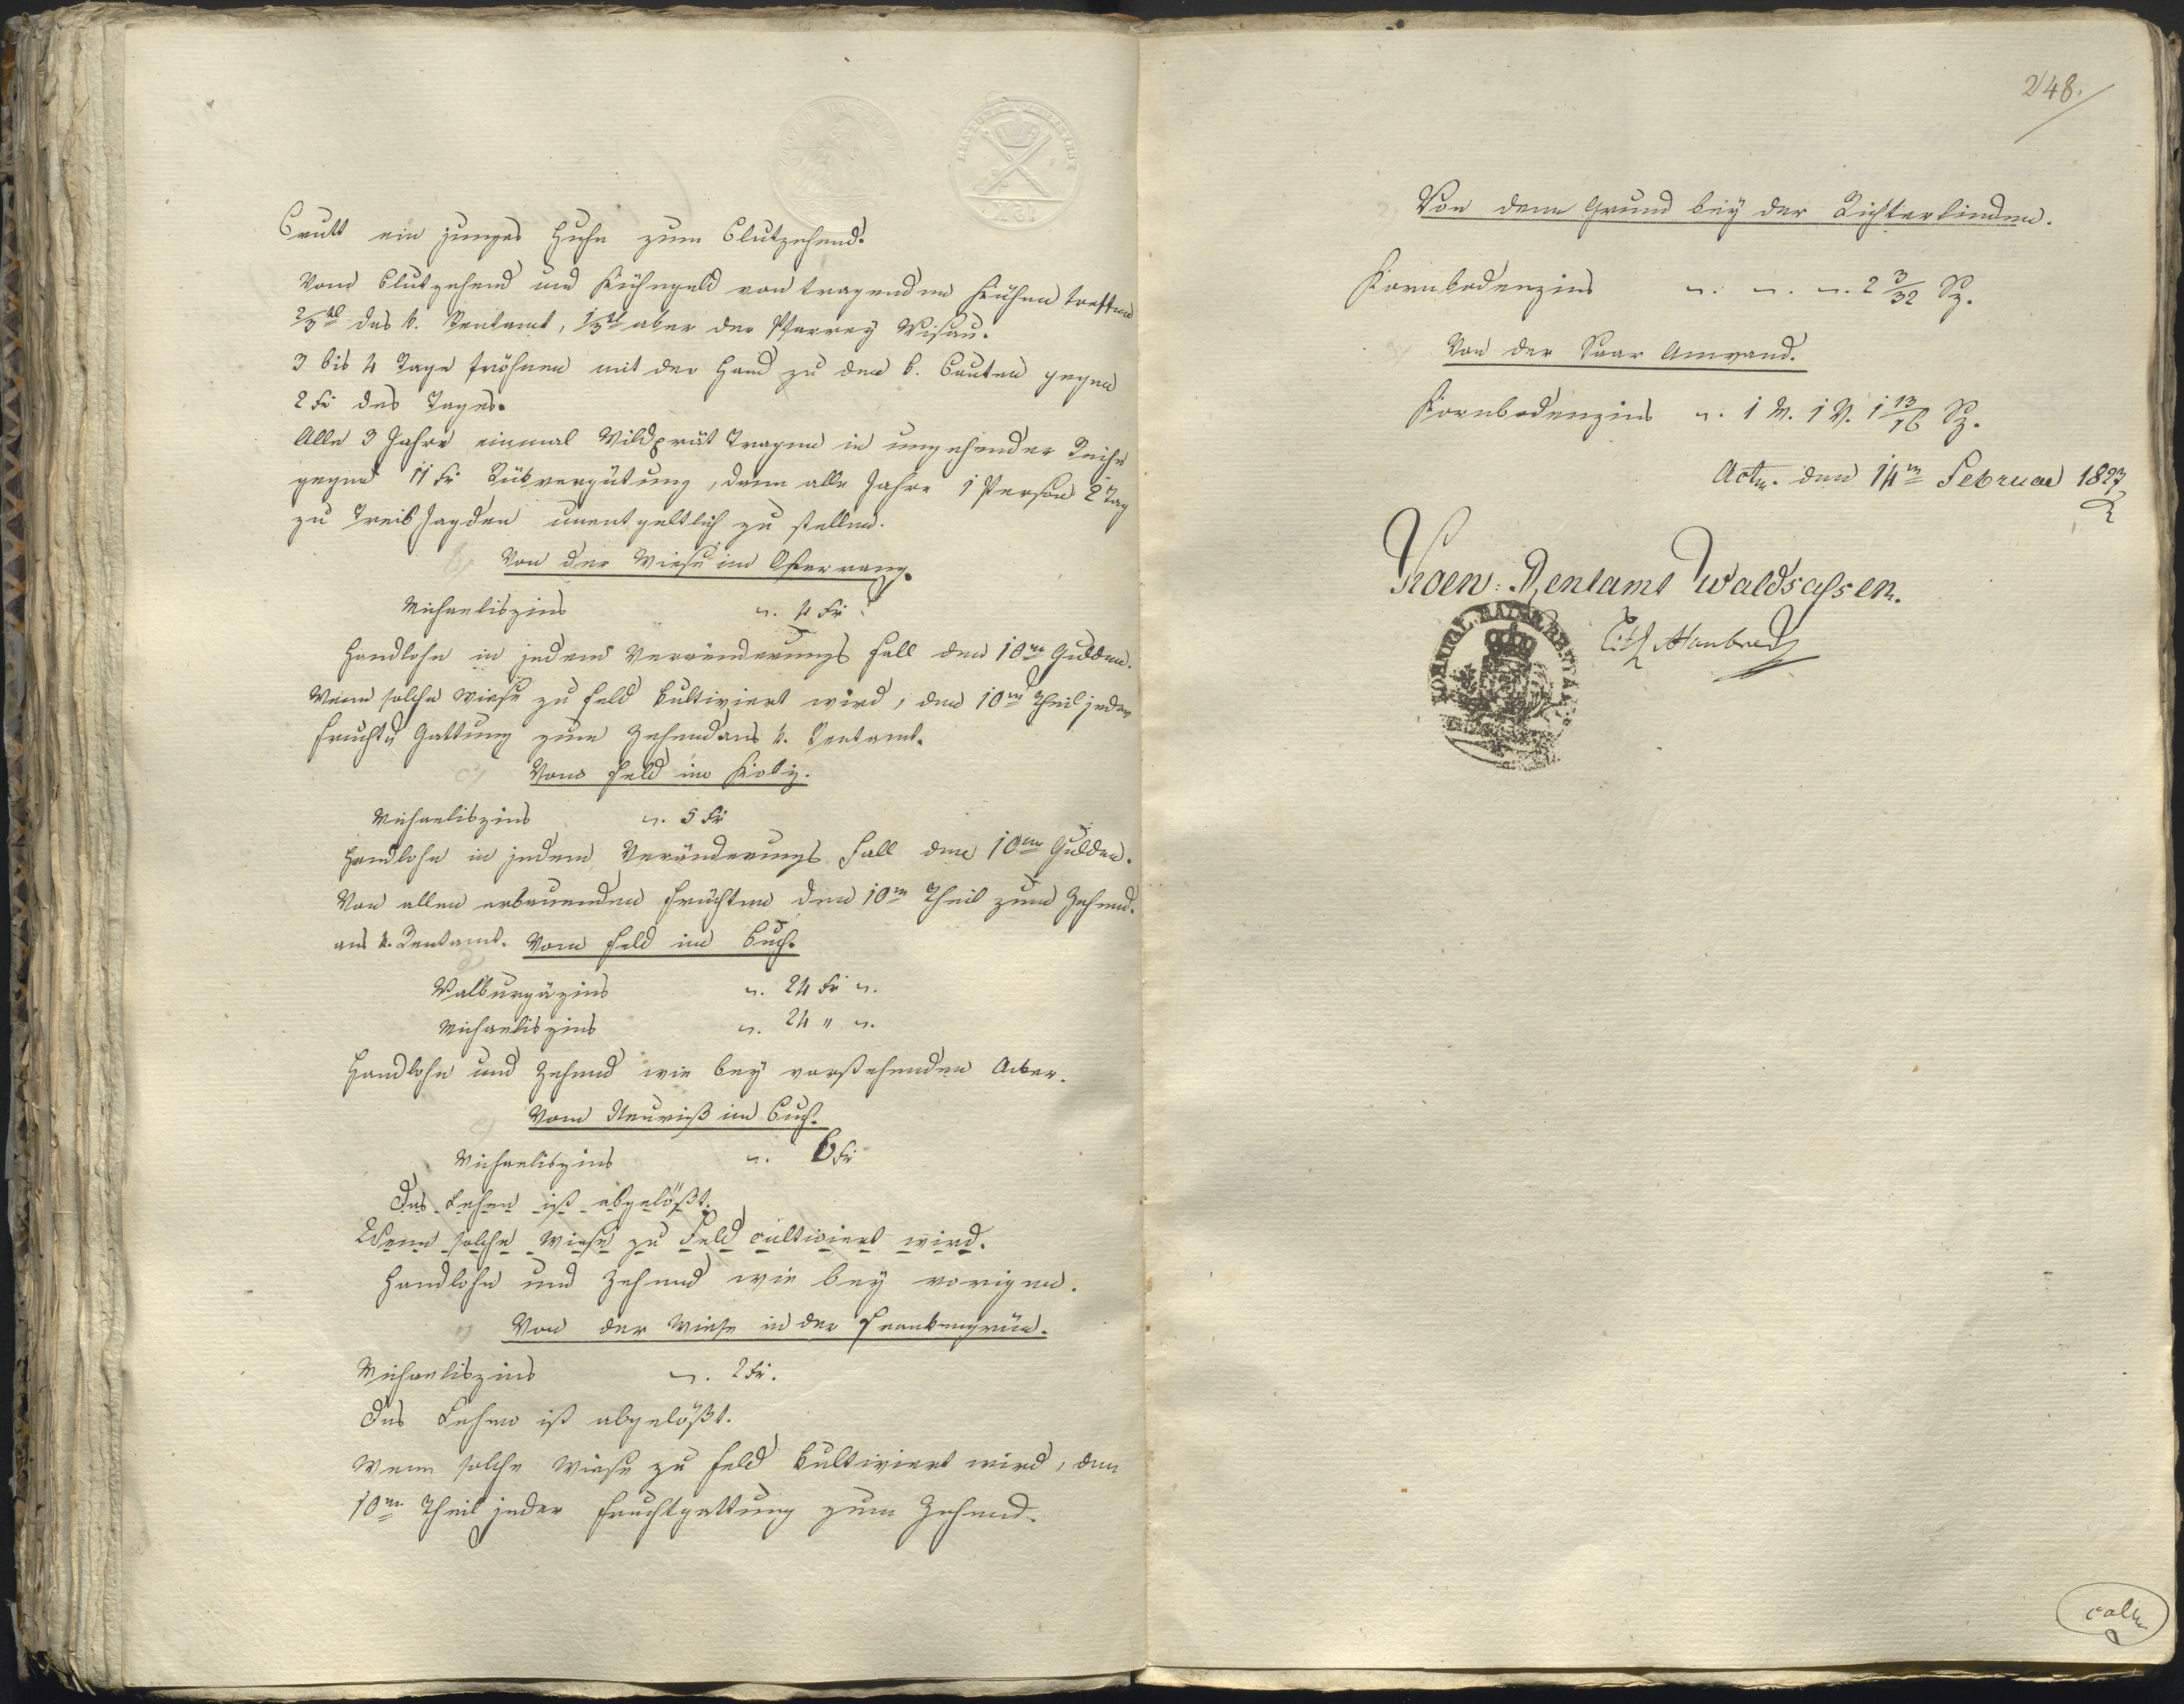 Brutt ein junges Huhn zum Blutzehend.
Vom Blutzehend und Kühegeld von tragenden Kühen treffen
2/3tl das k. Rentamt, 1/3tl aber der Pfarrey Wisau.
3 bis 4 Tage fröhnen mit der Hand zu den k. Bauten gegen
2 kr des Tages.
Alle 3 Jahre einmal Wildprät Tragen in umgehender Reihe
gegen 11 kr Rükvergütung, dann alle Jahre 1 Person 2 Tag
zu Treib Jagden unentgeltlich zu stellen.
b) Von der Wiese im
Michaeliszins 4 kr
Handlohn in jedem Veränderungs Fall den 10ten Gulden.
Wenn solche Wiese zu Feld kultiviert wird, den 10ten Theil jeder
Frucht Gattung zum Zehend ans k. Rentamt.
c) Vom Feld im Kobiz.
Michaeliszins 5 kr
Handlohn in jedem Veränderungs Fall den 10ten Gulden.
Von allen erbauenden Früchten den 10ten Theil zum Zehend.
ans k. Rentamt. Vom Feld im Buch.
Walburgäzins 24 kr
Michaeliszins 24 "
Handlohn und Zehend wie bey vorstehenden Acker.
e) Vom Neuriß im Buch.
Michaeliszins 6 kr
Das Lehen ist abgelößt.
Wenn solche Wiese zu Feld cultiviert wird.
Handlohn und Zehend wie bey vorigen.
Von der Wiese in der Frankengrün.
Michaeliszins 2 kr.
Das Lehen ist abgelößt.
Wenn solche Wiese zu Feld kultiviert wird, den
10ten Theil jeder Fruchtgattung zum Zehend.
248.
Von dem Grund bey der Richterlinden.
Kornbodenzins 2 3/32 Sz.
Von der Saar Anwand.
Kornbodenzins 1 M. 1 V. 1 13/16 Sz.
Actm. den 14ten Februar 1827
Koen: Rentamt Waldsassen.
KOENIGL. BAIER. RENTA
coll.